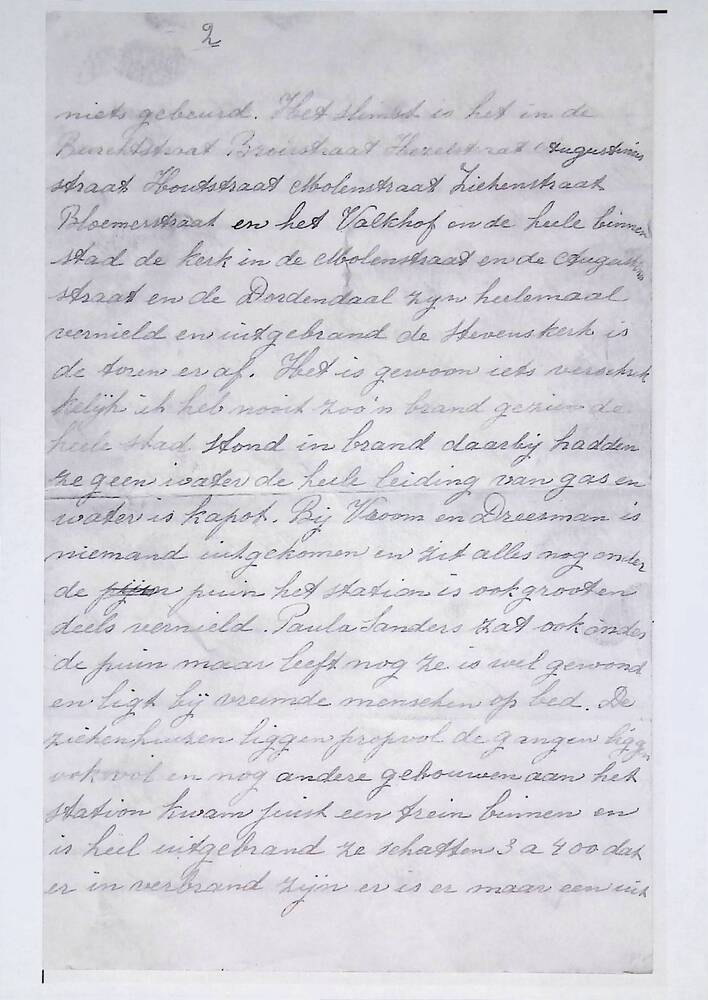 2
niets gebeurd. Het slimst is het in de
Burchtstraat Broerstraat Hezelstraat Augustinus
straat Houtstraat Molenstraat Ziekenstraat
Bloemerstraat en het Valkhof en de heele binnen
stad de kerk in de Molenstraat en de Augustinus
straat en de Dordendaal zijn heelemaal
vernield en uitgebrand de Stevenskerk is
de toren er af. Het is gewoon iets verschrik
kelijk ik heb nooit zoo'n brand gezien de
heele stad stond in brand daarbij hadden
ze geen water de heele leiding van gas en
water is kapot. Bij Vroom en Dreesman is
niemand uitgekomen en zit alles nog onder
de puin het station is ook grooten
deels vernield. Paula Sanders zat ook onder
de puin maar leeft nog ze is wel gewond
en ligt bij vreemde menschen op bed. De
ziekenhuizen liggen propvol de gangen liggen
ook vol en nog andere gebouwen aan het
station kwam juist een trein binnen en
is heel uitgebrand ze schatten 3 a 400 dat
er in verbrand zijn er is er maar een uit